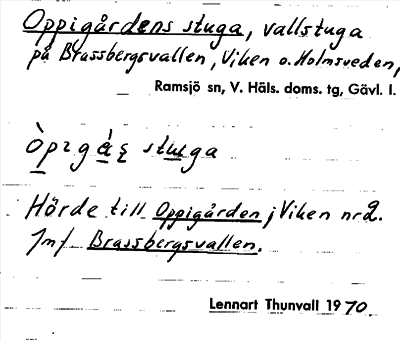 Oppigårdens stuga, vallstuga
på Brassbergsvallen, Viken o. Holmsveden,
Ramsjö sn, V. Häls. doms. tg, Gävl. l.
stuga
Hörde till Oppigården i Viken nr 2.
Jmf Brassbergsvallen.
Lennart Thunvall 1970